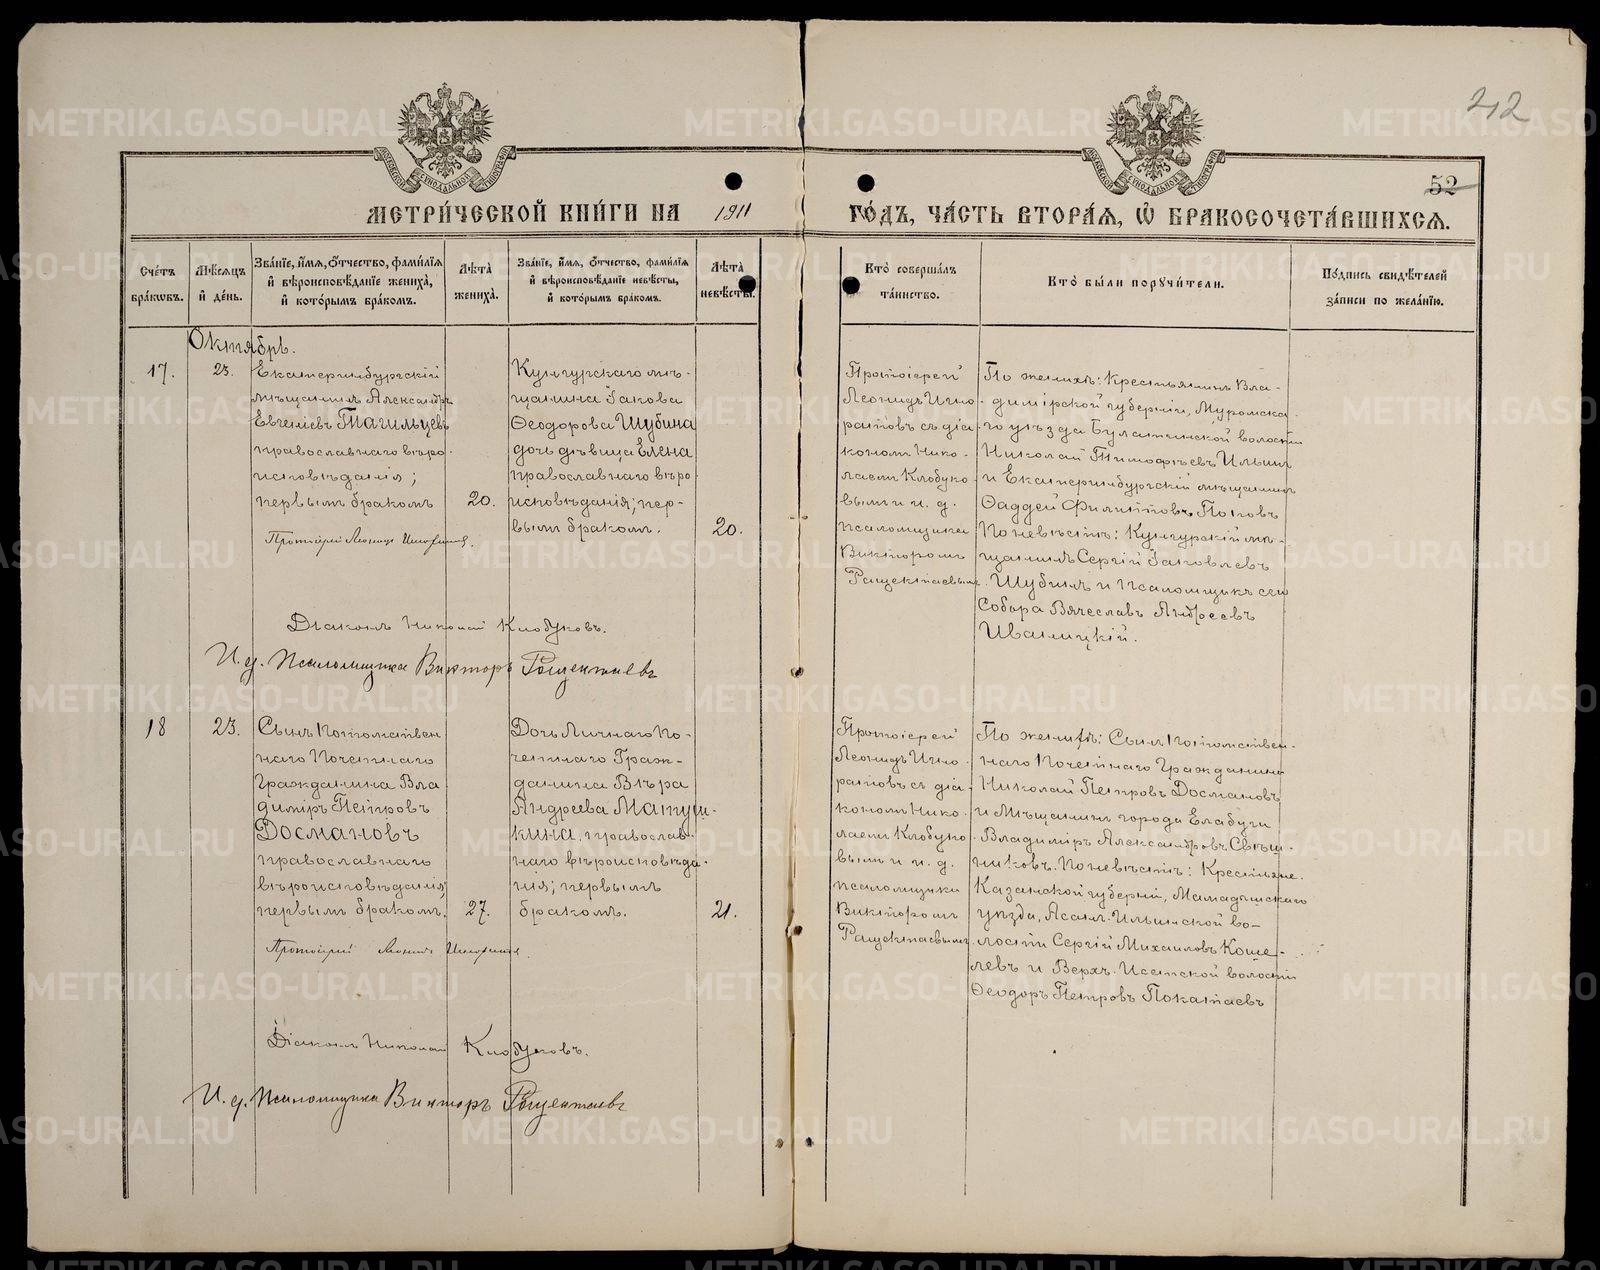 212
52
МЕТРИ́ЧЕСКОЙ КНИ́ГИ НА 1911 ГО́ДЪ, ЧА́СТЬ ВТОРА́Я, Ѡ҆ БРАКОСОЧЕТА́ВШИХСЯ.
Сче́тъ бра́кωвъ.
Мѣ́сяцъ и҆ де́нь.
Зва́нїе, и҆́мя, ѻ҆́тчество, фами́лїя и҆ вѣроисповѣ́данїе жениха̀, и҆ кото́рымъ бра́комъ.
Лѣ́та̀ жениха̀.
Зва́нїе, и҆́мя, ѻ҆́тчество, фами́лїя и҆ вѣроисповѣ́данїе невѣ́сты, и҆ кото́рымъ бра́комъ.
Лѣ́та̀ невѣ́сты.
Кто̀ соверша́лъ та́инство.
Кто̀ бы́ли порꙋчи́тели.
По́дпись свидѣ́телей за́писи по жела́нїю.
Октябрь.
17.
23.
Екатеринбургскій
мѣщанинъ Александръ
Евгеніевъ Тагильцевъ
православнаго вѣро-
исповѣданія;
первымъ бракомъ
20.
Кунгурскаго мѣ-
щанина Іакова
Ѳеодорова Шубина
дочь дѣвица Елена
православнаго вѣро
исповѣданія; пер-
вымъ бракомъ.
20.
Протоіерей
Леонидъ Игно
ратовъ съ діа-
кономъ Нико-
лаемъ Клобуко-
вымъ и и. д.
псаломщика
Викторомъ
Ращектаевымъ.
По женихѣ: Крестьянинъ Вла-
димірской губерніи, Муромска-
го уѣзда Булатинской волости
Николай Тимофѣевъ Ильинъ
и Екатеринбургскій мѣщанинъ
Ѳаддей Филипповъ Поповъ
По невѣстѣ: Кунгурскій мѣ-
щанинъ Сергій Іаковлевъ
Шубинъ и Псаломщикъ сего
Собора Вячеславъ Андреевъ
Иваницкій.
Протоіерей Леонидъ Игноратовъ.
Діаконъ Николай Клобуковъ.
И. д. Псаломщика Викторъ Ращектаевъ
18
23.
Сынъ Потомствен
наго Почетнаго
Гражданина Вла
диміръ Петровъ
Досмановъ
православнаго
вѣроисповѣданія;
первымъ бракомъ.
27.
Дочь Личнаго По-
четнаго Граж-
данина Вѣра
Андреева Матуш-
кина, православ-
наго вѣроисповѣда-
нія; первымъ
бракомъ.
21.
Протоіерей
Леонидъ Игно
ратовъ съ діа-
кономъ Нико-
лаемъ Клобуко
вымъ и и. д.
псаломщика
Викторомъ
Ращектаевымъ.
По женихѣ: Сынъ Потомствен-
наго Почетнаго Гражданина
Николай Петровъ Досмановъ
и Мѣщанинъ города Елабуги
Владиміръ Александровъ Свѣш-
никовъ. По невѣстѣ: Крестьяне:
Казанской губерніи, Мамадышскаго
уѣзда, Асан-Ильинской во-
лости Сергій Михаиловъ Коше-
левъ и Верхъ-Исетской волости
Ѳеодоръ Петровъ Покатаевъ
Протоіерей Леонидъ Игноратовъ.
Діаконъ Николай Клобуковъ.
И. д. Псаломщика Викторъ Ращектаевъ
METRIKI.GASO-URAL.RU